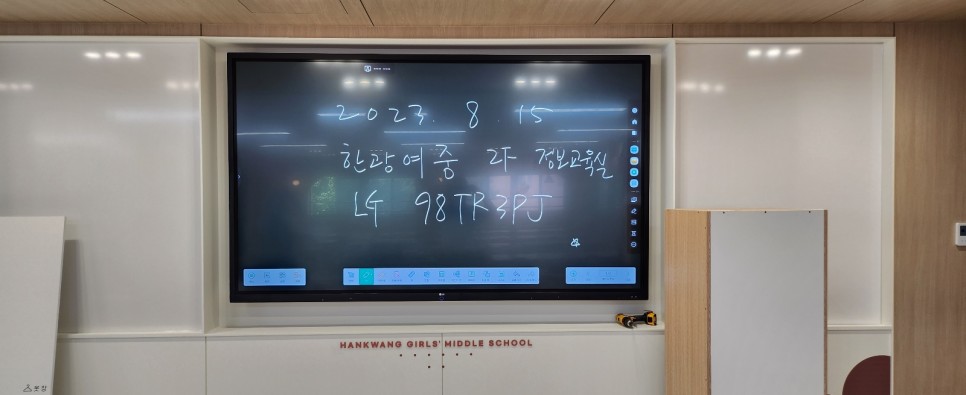 2023. 8. 15
한광여중 과 정보교육실
LG 98TR3PJ
HANKWANG GIRLS' MIDDLE SCHOOL